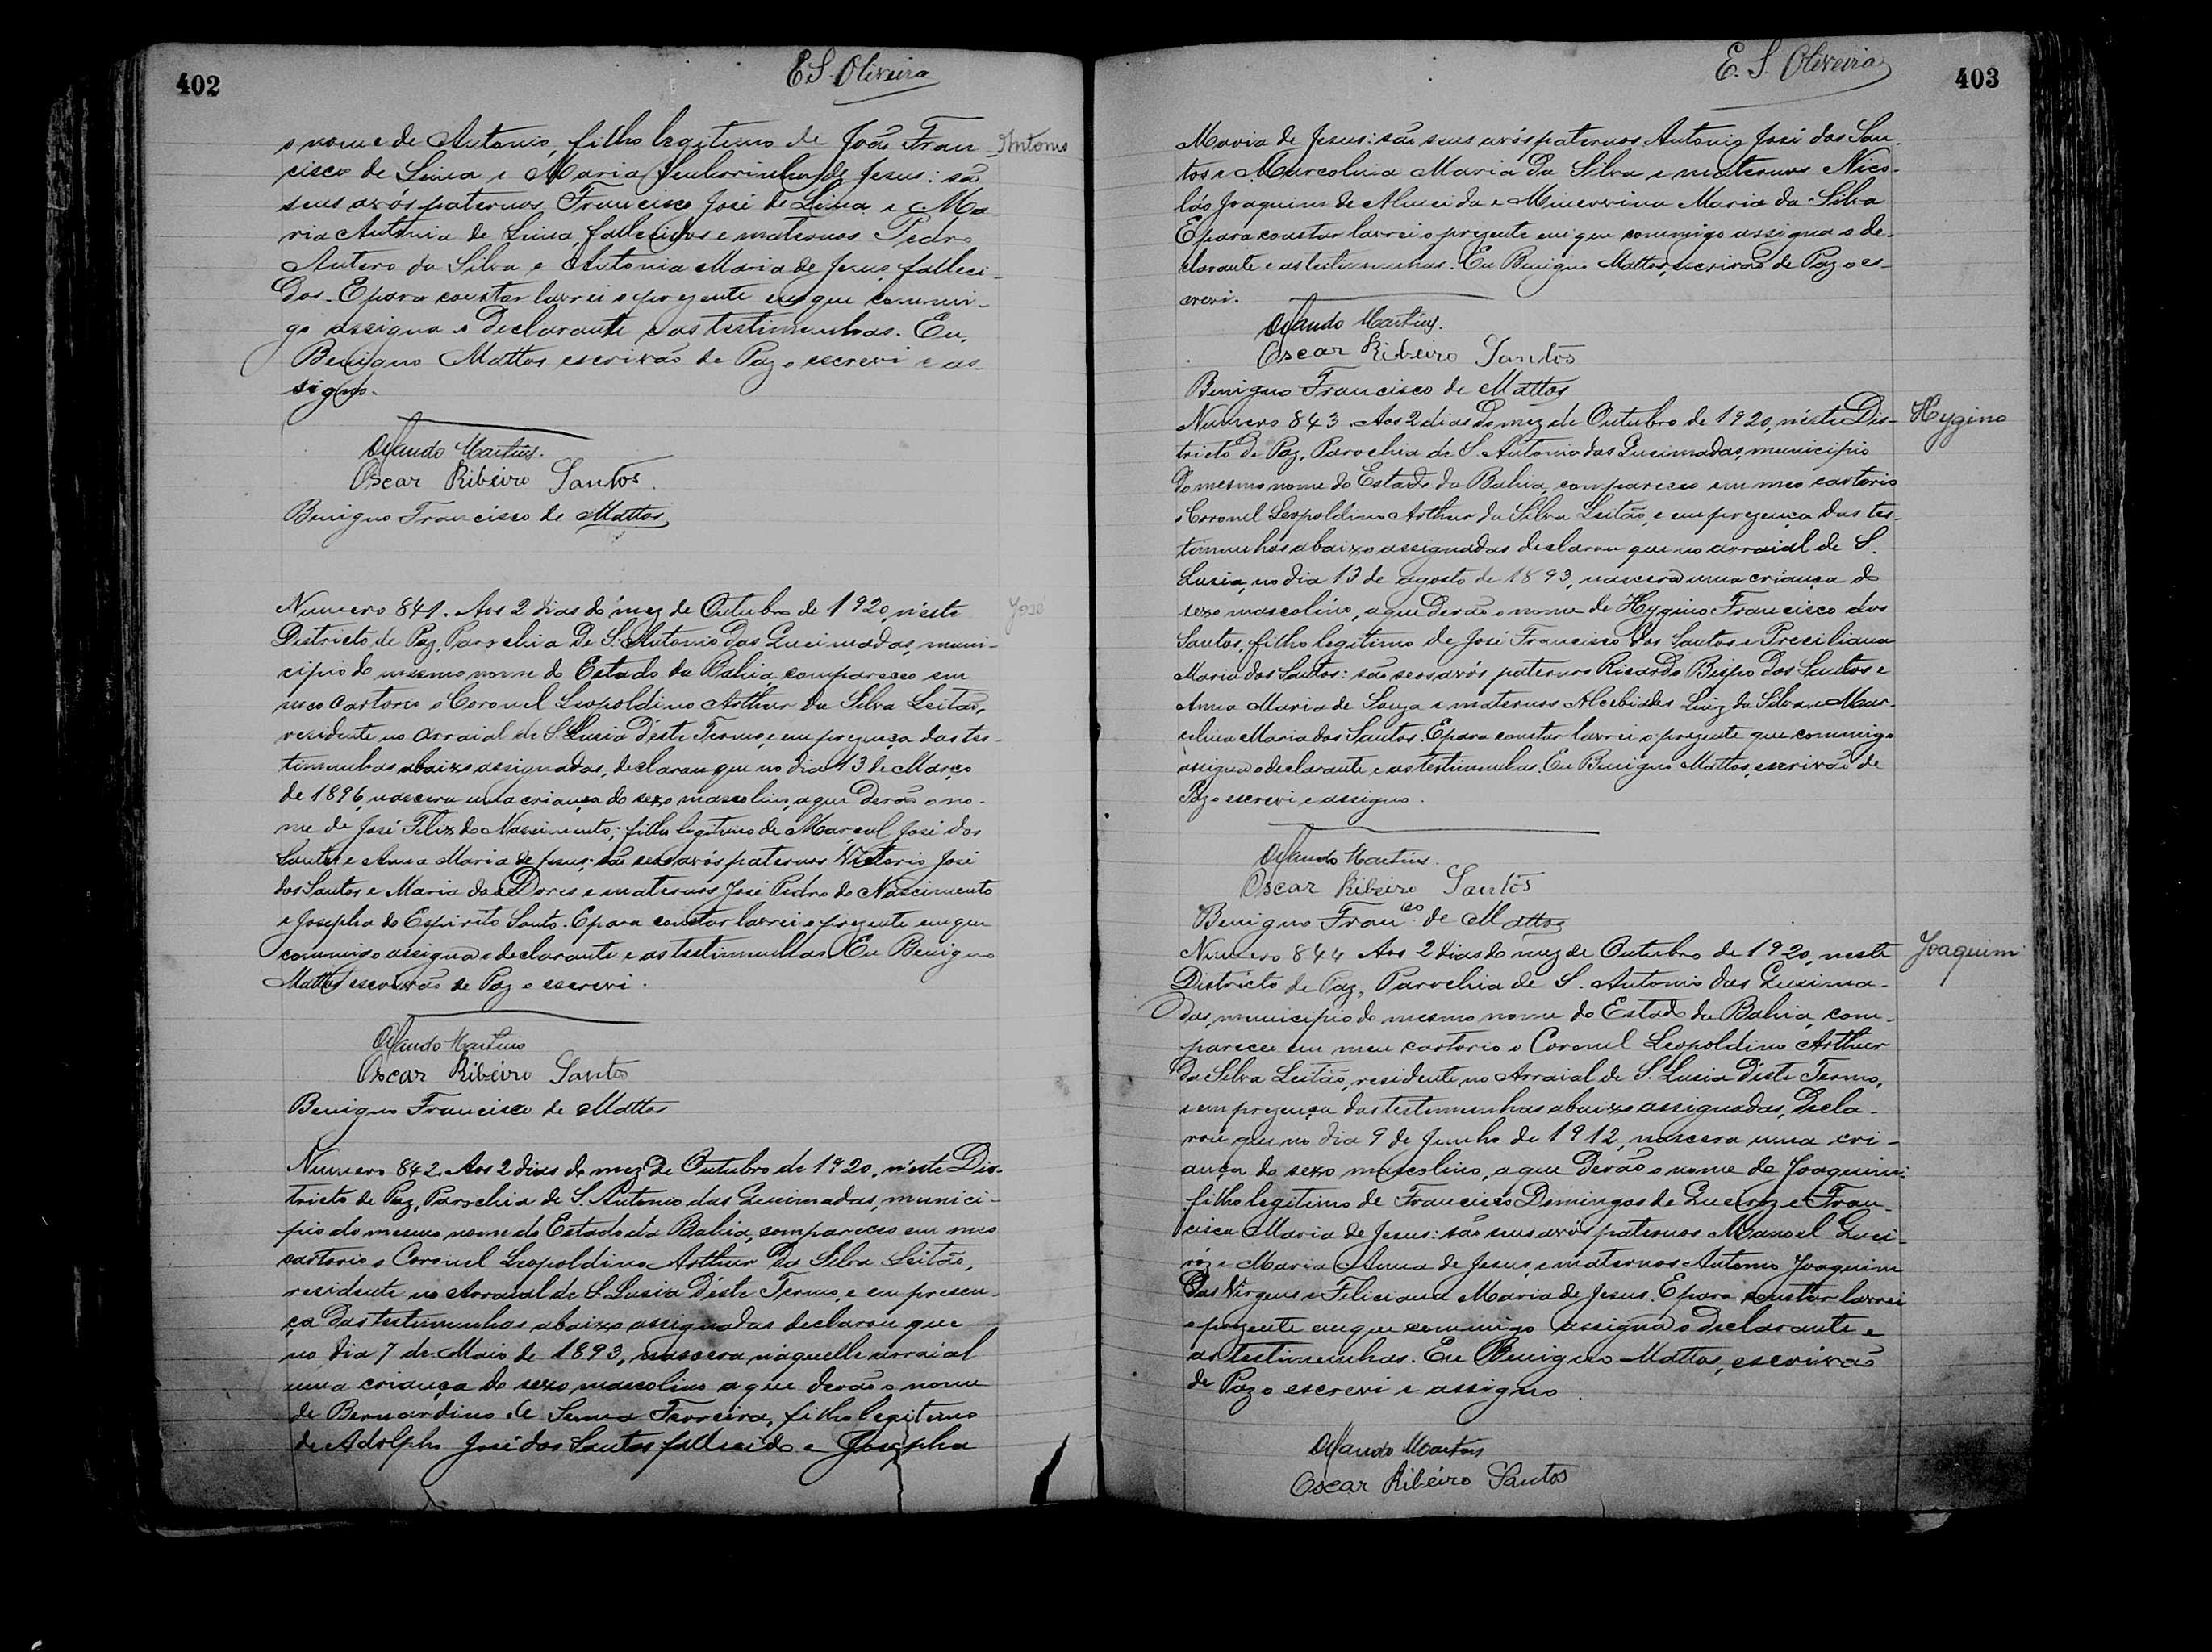 402
E.S. Oliveira
o nome de Antonio, filho legitimo de João Fran-
Antonio
cisco de Lima e Maria Senhorinha de Jesus: são
seus avós paternos Francisco José de Lima e Ma
ria Antonia de Lima, fallecidos e maternos Pedro
Antero da Silva e Antonia Maria de Jesus, falleci-
dos. E para constar lavrei o prezente em que commi-
go assigna o declarante e as testimunhas. Eu,
Benigno Mattos escrivão de Paz o escrevi e as-
signo.
Orlando Martins.
Oscar Ribeiro Santos.
Benigno Francisco de Mattos
Numero 841. Aos 2 dias do mez de Outubro de 1920, n'este
José
Districto de Paz, Parochia de S. Antonio das Queimadas, muni-
cipio do mesmo nome do Estado da Bahia compareceo em
meo cartorio o Coronel Leopoldino Arthur da Silva Leitão,
residente no Arraial de S. Lusia d'este Termo, e em prezença das tes-
timunhas abaixo assignadas, declarou que no dia 13 de Março
de 1896, nascera uma criança do sexo masculino, a que derão o no-
me de José Felix do Nascimento; filho legitimo de Marcol José dos
Santos e Anna Maria de Jesus; são seus avós paternos Victorio José
dos Santos e Maria das Dores e maternos José Pedro do Nascimento
e Josepha do Espirito Santo. E para constar lavrei o prezente em que
commigo assigna o declarante e as testimunhas. Eu Benigno
Mattos escrivão de Paz o escrevi.
Orlando Martins
Oscar Ribeiro Santos
Benigno Francisco de Mattos
Numero 842. Aos 2 dias do mez de Outubro de 1920, n'este Dis-
tricto de Paz, Parochia de S. Antonio das Queimadas, munici-
pio do mesmo nome do Estado da Bahia, compareceo em meo
cartorio o Coronel Leopoldino Arthur da Silva Leitão,
residente no Arraial de S. Lusia d'este Termo, e em presen-
ça das testimunhas abaixo assignadas declarou que
no dia 7 de Maio de 1893, nascera n'aquelle arraial
uma criança do sexo masculino a que derão o nome
de Bernardino de Senna Ferreira, filho legitimo
de Adolpho José dos Santos fallecido e Josepha
E. S. Oliveira
403
Maria de Jesus: são seus avós paternos Antonio José dos San-
tos e Marcolina Maria da Silva e maternos Nico-
láo Joaquim de Almeida e Minervina Maria da Silva
E para constar lavrei o prezente em que commigo assigna o de-
clarante e as testimunhas. Eu Benigno Mattos, escrivão de Paz o es-
crevi.
Orlando Martins.
Oscar Ribeiro Santos
Benigno Francisco de Mattos
Numero 843. Aos 2 dias do mez de Outubro de 1920, n'este Dis-
Hygino
tricto de Paz, Parochia de S. Antonio das Queimadas, municipio
do mesmo nome do Estado da Bahia, compareceo em meo cartorio
o Coronel Leopoldino Arthur da Silva Leitão, e em prezença das tes-
timunhas abaixo assignadas declarou que no arraial de S.
Lusia, no dia 13 de agosto de 1893, nascera uma criança do
sexo masculino, a que derão o nome de Hygino Francisco dos
Santos, filho legitimo de José Francisco dos Santos e Preciliana
Maria dos Santos: são seos avós paternos Ricardo Bispo dos Santos e
Anna Maria de Souza e maternos Alcebiades Luiz da Silva e Mar-
celina Maria dos Santos. E para constar lavrei o prezente que commigo
assigna o declarante e as testimunhas. Eu Benigno Mattos, escrivão de
Paz o escrevi e assigno.
Orlando Martins.
Oscar Ribeiro Santos
Benigno Fran.co de Mattos
Numero 844 Aos 2 dias do mez de Outubro de 1920, neste
Joaquim
Districto de Paz, Parochia de S. Antonio das Queima-
das, municipio do mesmo nome do Estado da Bahia, com-
pareceu em meu cartorio o Coronel Leopoldino Arthur
da Silva Leitão, residente no Arraial de S. Lusia d'este Termo,
e em prezença das testimunhas abaixo assignadas, decla-
rou que no dia 9 de Junho de 1912, nascera uma cri-
ança do sexo masculino, a que derão o nome de Joaquim:
filho legitimo de Francisco Domingos de Queiroz e Fran-
cisca Maria de Jesus: são seus avós paternos Manoel Quei-
roz e Maria Anna de Jesus, e maternos Antonio Joaquim
das Virgens e Feliciana Maria de Jesus. E para constar lavrei
o prezente em que commigo assigna o declarante e
as testimunhas. Eu Benigno Mattos, escrivão
de Paz o escrevi e assigno.
Orlando Martins
Oscar Ribeiro Santos